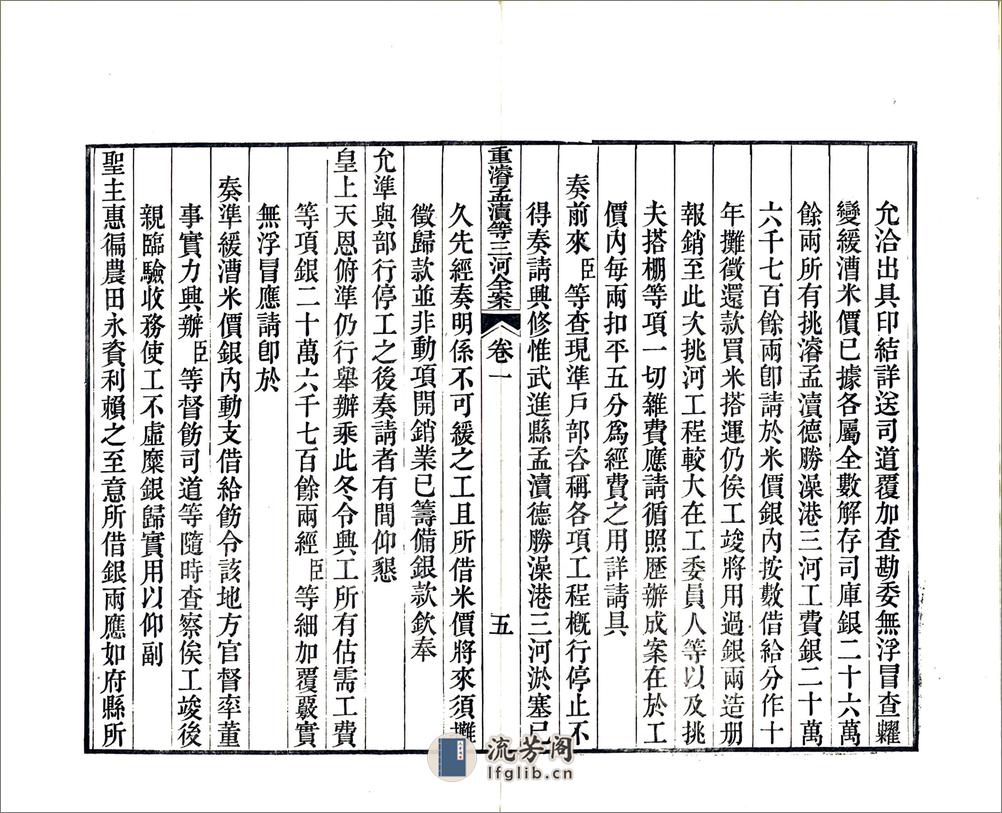 允洽出具印結詳送司道覆加查勘委無浮冒查糶
變緩漕米價已據各屬全數解存司庫銀二十六萬
餘兩所有挑濬孟瀆德勝澡港三河工費銀二十萬
六千七百餘兩卽請於米價銀內按數借給分作十
年攤徵還款買米搭運仍俟工竣將用過銀兩造册
報銷至此次挑河工程較大在工委員人等以及挑
夫搭棚等項一切雜費應請循照歷辦成案在於工
價內每兩扣平五分爲經費之用詳請具
奏前來臣等查現準戶部咨稱各項工程概行停止不
得奏請興修惟武進縣孟瀆德勝澡港三河淤塞已
重濬孟瀆等三河全案 卷一 五
久先經奏明係不可緩之工且所借米價將來須攤
徵歸款並非動項開銷業已籌備銀款欽奉
允準與部行停工之後奏請者有間仰懇
皇上天恩俯準仍行舉辦乘此冬令興工所有估需工費
等項銀二十萬六千七百餘兩經臣等細加覆覈實
無浮冒應請卽於
奏準緩漕米價銀內動支借給飭令該地方官督率董
事實力興辦臣等督飭司道等隨時查察俟工竣後
親臨驗收務使工不虛糜銀歸實用以仰副
聖主惠徧農田永資利賴之至意所借銀兩應如府縣所
流芳阁
lfglib.cn